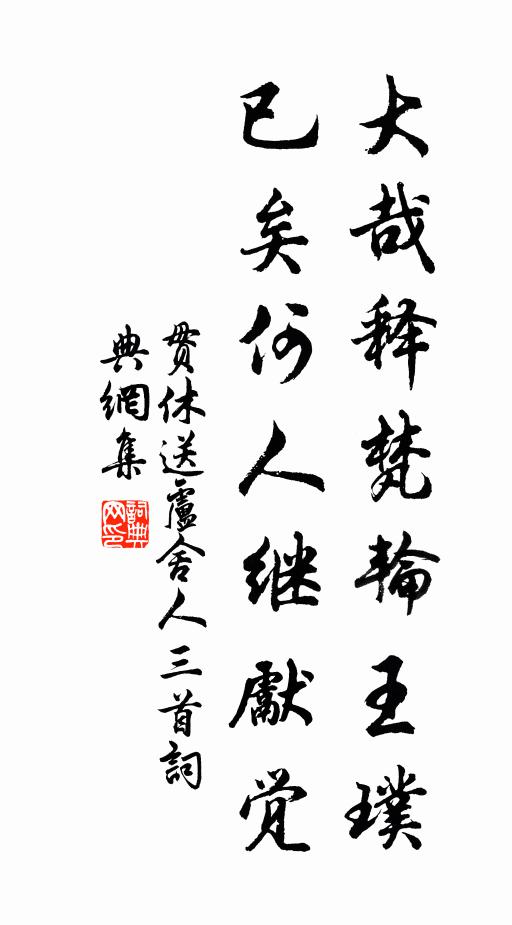 大哉释梵輪王璞
已矣何人继獻觉
贯休送盧舍人三首詞
典網集
詞典网印